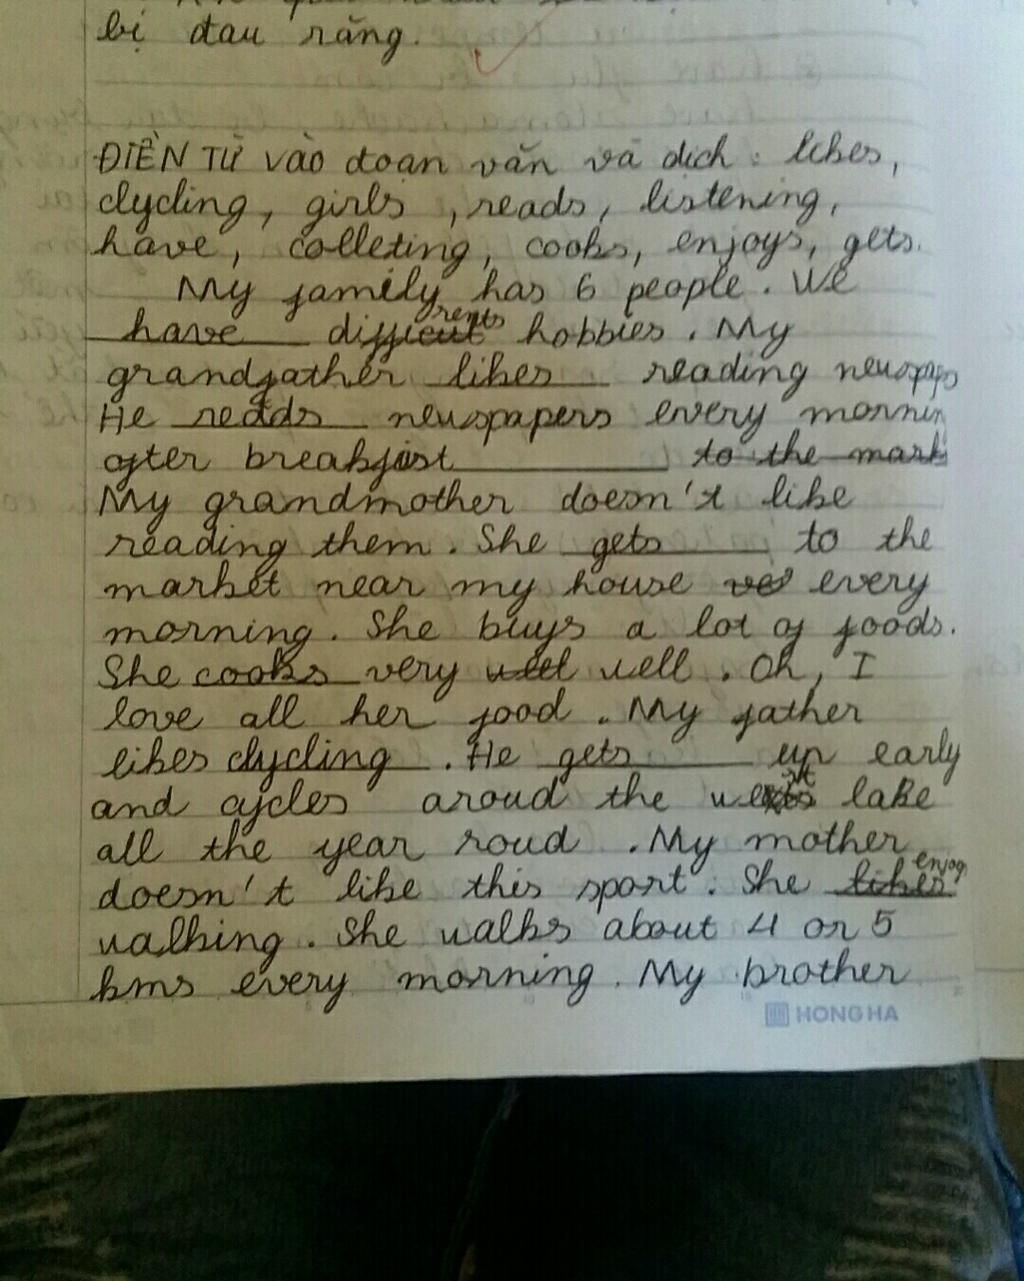 bị đau răng.
ĐIỀN TỪ vào đoạn văn và dịch : likes,
clycling, girls , reads, listening,
have, colleting, cooks, enjoys, gets.
My family has 6 people. We
have difficult rents hobbies. My
grandfather likes reading newspaps
He reads newspapers every mornin
after breakfast to the mark
My grandmother doesn't like
reading them. She gets to the
market near my house ves every
morning. She buys a lot of foods.
She cooks very well well. Oh, I
love all her food. My father
likes clycling. He gets up early
and cycles aroud the west lake
all the year roud. My mother
doesn't like this sport. She likes enjoy
walking. She walks about 4 or 5
kms every morning. My brother
HONG HA